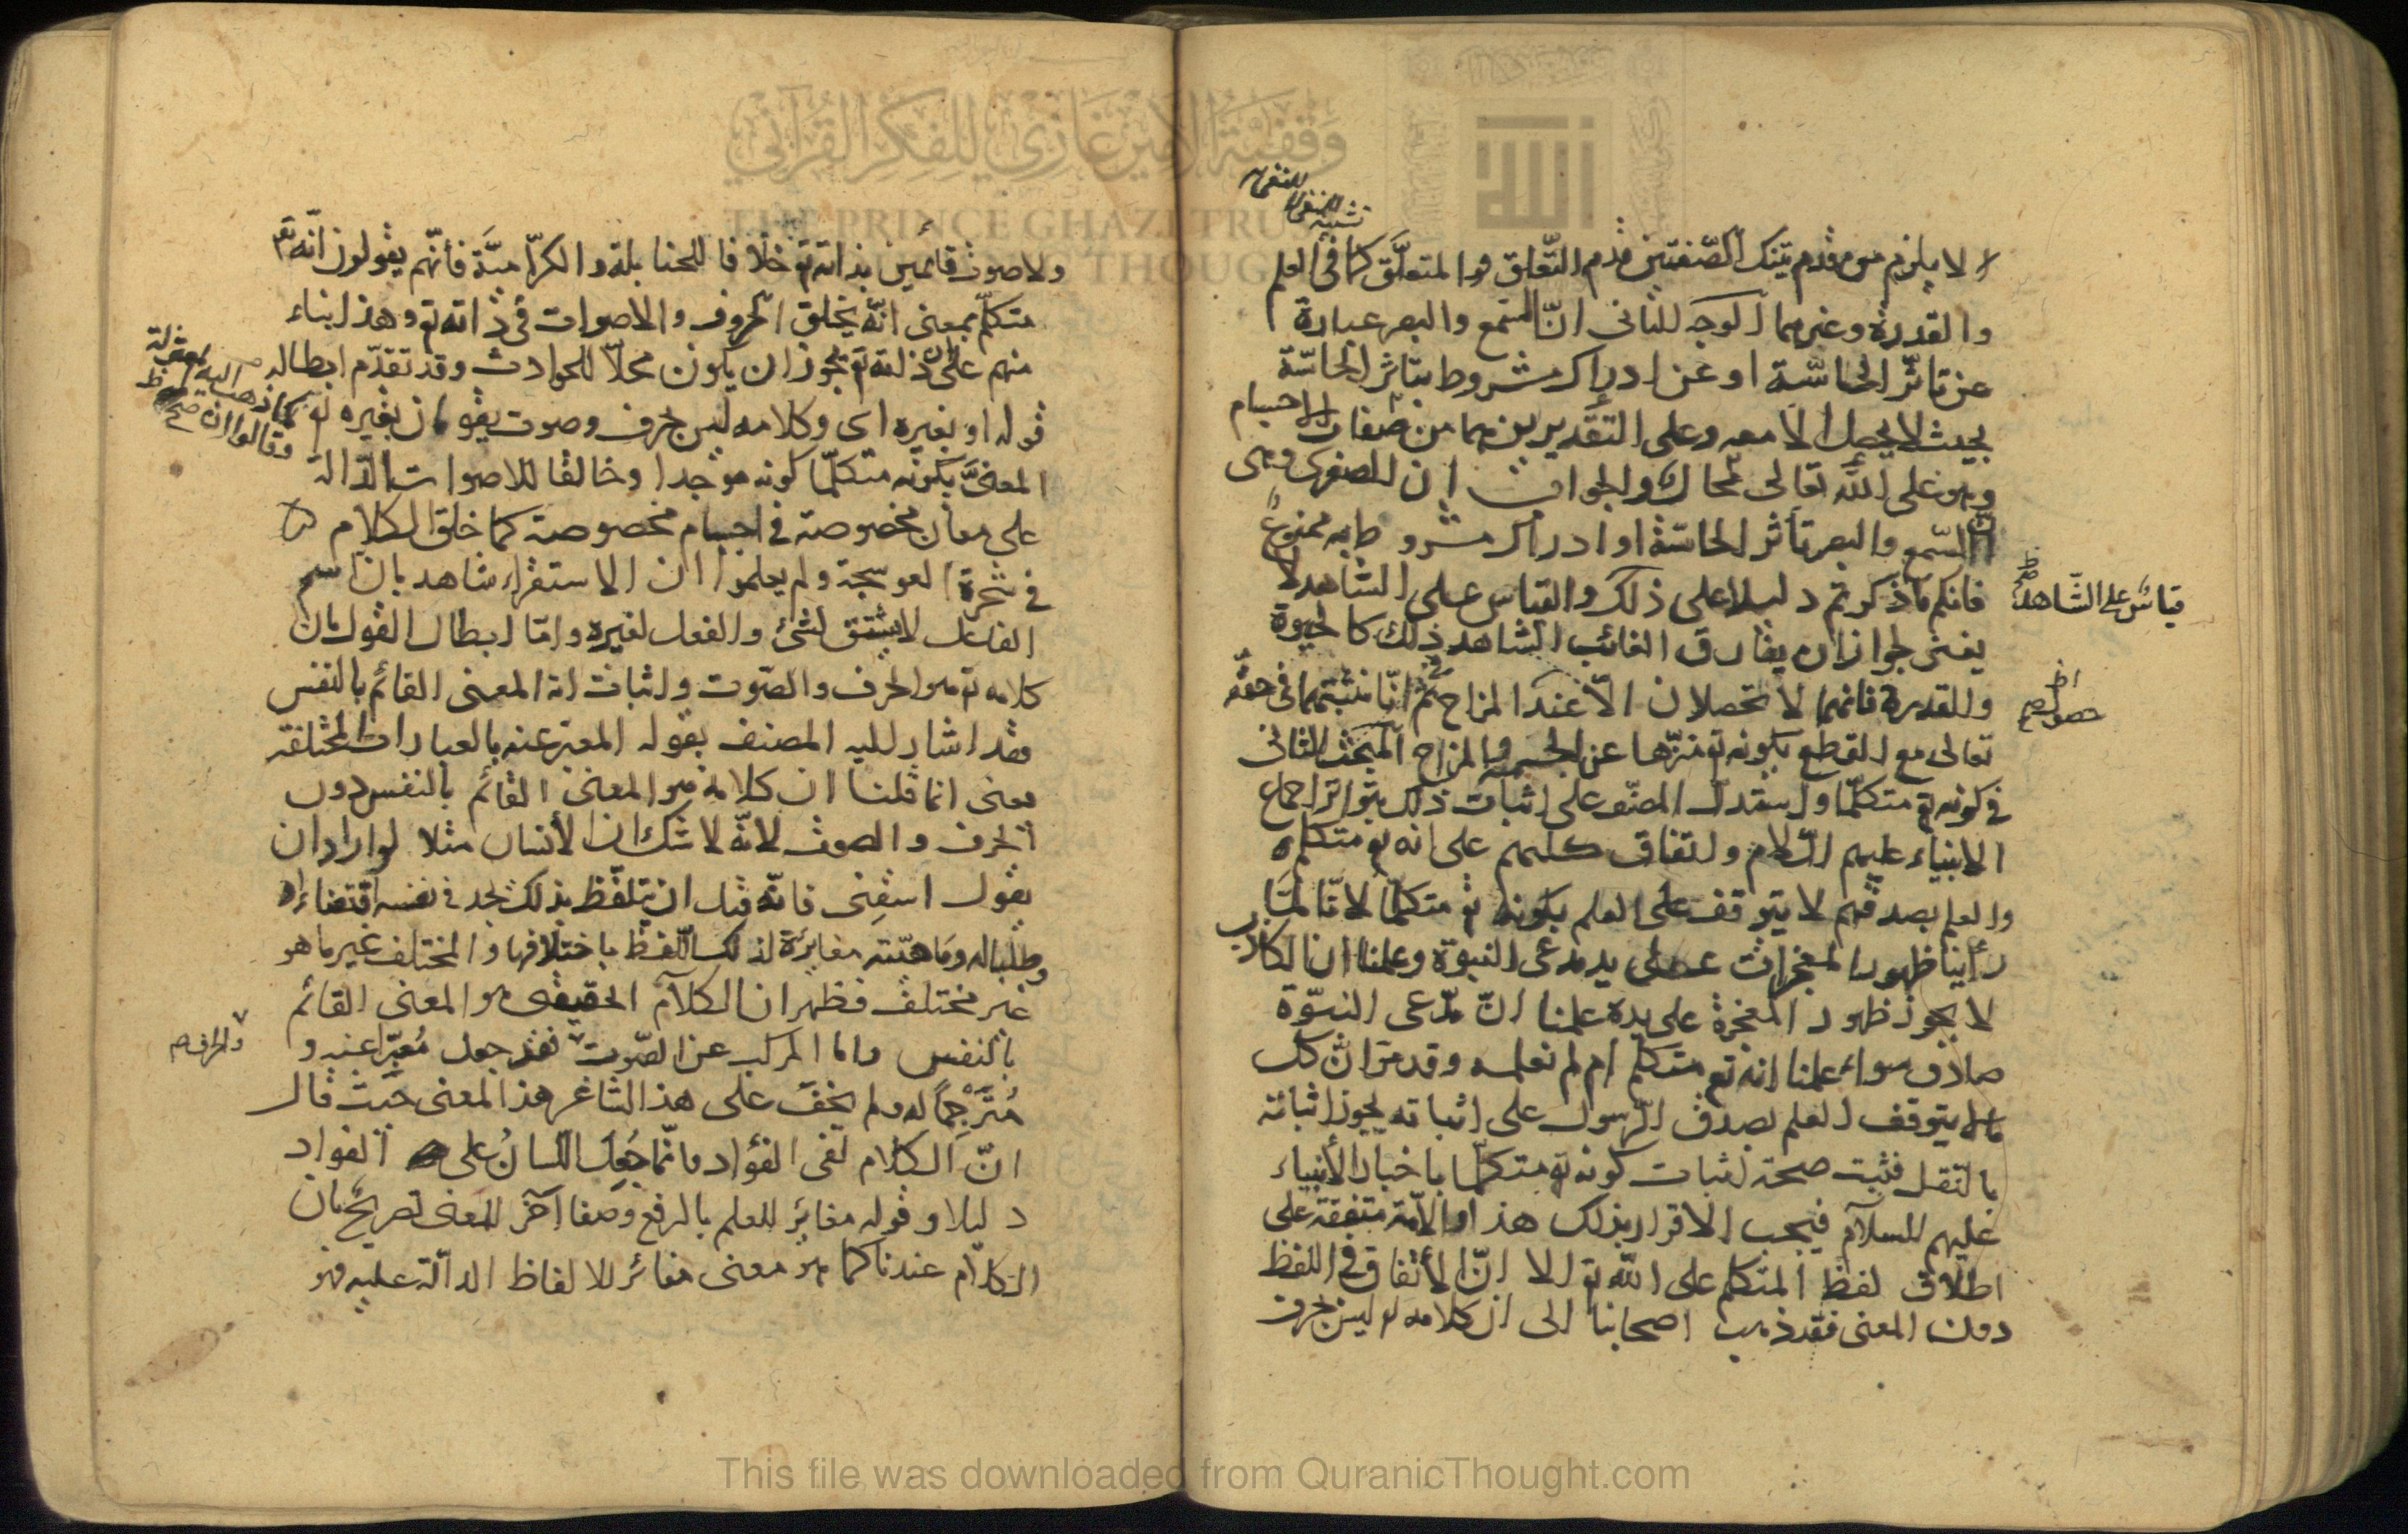 لا يلزم من قدم تينك الصفتين قدم التعلق والمتعلق كما في العلم
والقدرة وغيرهما الوجه الثاني ان السمع والبصر عبارة
عن تاثر الحاسة او عن ادراك مشروط بتاثر الحاسة
بحيث لا يحصل الا معه وعلى التقديرين هما من صفات الاجسام
وهو على الله تعالى محال والجواب ان الصغرى وهى
ان السمع والبصر تأثر الحاسة او ادراك مشروط به ممنوع
فانكم ما ذكرتم دليلا على ذلك والقياس على الشاهد لا
يغنى لجواز ان يفارق الغائب الشاهد ذلك كالحيوة
والقدرة فانهما لا تحصلان الا عند المزاج ثم انا نثبتهما فى حقه
تعالى مع القطع بكونه تع منزها عن الجسمية والمزاج المبحث الثانى
في كونه تع متكلما واستدل المصنف على اثبات ذلك بتواتر اجماع
الانبياء عليهم السلام واتفاق كلهم على انه تع متكلم
والعلم بصدقهم لا يتوقف على العلم بكونه تع متكلما لانا لما
رأينا ظهور المعجزات على يد مدعى النبوة وعلمنا ان الكاذب
لا يجوز ظهور المعجزة على يده علمنا ان مدعى النبوة
صادق سواء علمنا انه تع متكلم ام لم نعلمه وقد مر ان كل
ما لا يتوقف العلم بصدق الرسول على اثباته يجوز اثباته
بالنقل فثبت صحة اثبات كونه تع متكلما باخبار الأنبياء
عليهم السلام فيجب الاقرار بذلك هذا والامة متفقة على
اطلاق لفظ المتكلم على الله تع الا ان الأتفاق فى اللفظ
دون المعنى فقد ذهب اصحابنا الى ان كلامه تع ليس بحرف
قياس على الشاهد
حصول صح
ولا صوت قائمين بذاته تع خلافا للحنابلة والكرامية فأنهم يقولون انه تع
متكلم بمعنى انه يخلق الحروف والاصوات فى ذاته تع وهذا بناء
منهم على ان ذاته تع يجوز ان يكون محلا للحوادث وقد تقدم ابطاله
قوله او بغيره اى وكلامه ليس بحرف وصوت يقومان بغيره تع
المعنى بكونه متكلما كونه موجدا وخالقا للاصوات الدالة
على معان مخصوصة في اجسام مخصوصة كما خلق الكلام
في شجرة العوسجة ولم يعلموا ان الاستقراء شاهد بان اسم
الفاعل لا يشتق لشئ والفعل لغيره واما ابطال القول بان
كلامه تع هو الحرف والصوت واثبات انه المعنى القائم بالنفس
فقد اشار اليه المصنف بقوله المعبر عنه بالعبارات المختلفة
معنى انما قلنا ان كلامه هو المعنى القائم بالنفس دون
الحرف والصوت لانه لا شك ان الأنسان مثلا لو اراد ان
يقول اسقنى فانه قبل ان يتلفظ بذلك يجد فى نفسه اقتضاءا
وطلبا له وماهيته مغايرة لذلك اللفظ باختلافها والمختلف غير ما هو
غير مختلف فظهر ان الكلام الحقيقى هو المعنى القائم
بالنفس واما المركب عن الصوت فقد جعل معبرا عنه و
مترجما له ولم يخف على هذا الشاعر هذا المعنى حيث قال
ان الكلام لفى الفؤاد وانما جعل اللسان على الفواد
دليلا وقوله مغاير للعلم بالرفع وصفا آخر للمعنى تصريح بان
الكلام عندنا كما هو معنى مغائر للالفاظ الدالة عليه فهو
كما ذهب اليه المعتزلة
وقالوا ان صح
والحرف صح
وقفية الأمير غازي للفكر القرآني
THE PRINCE GHAZI TRUST
THOUGHT
This file was downloaded from QuranicThought.com